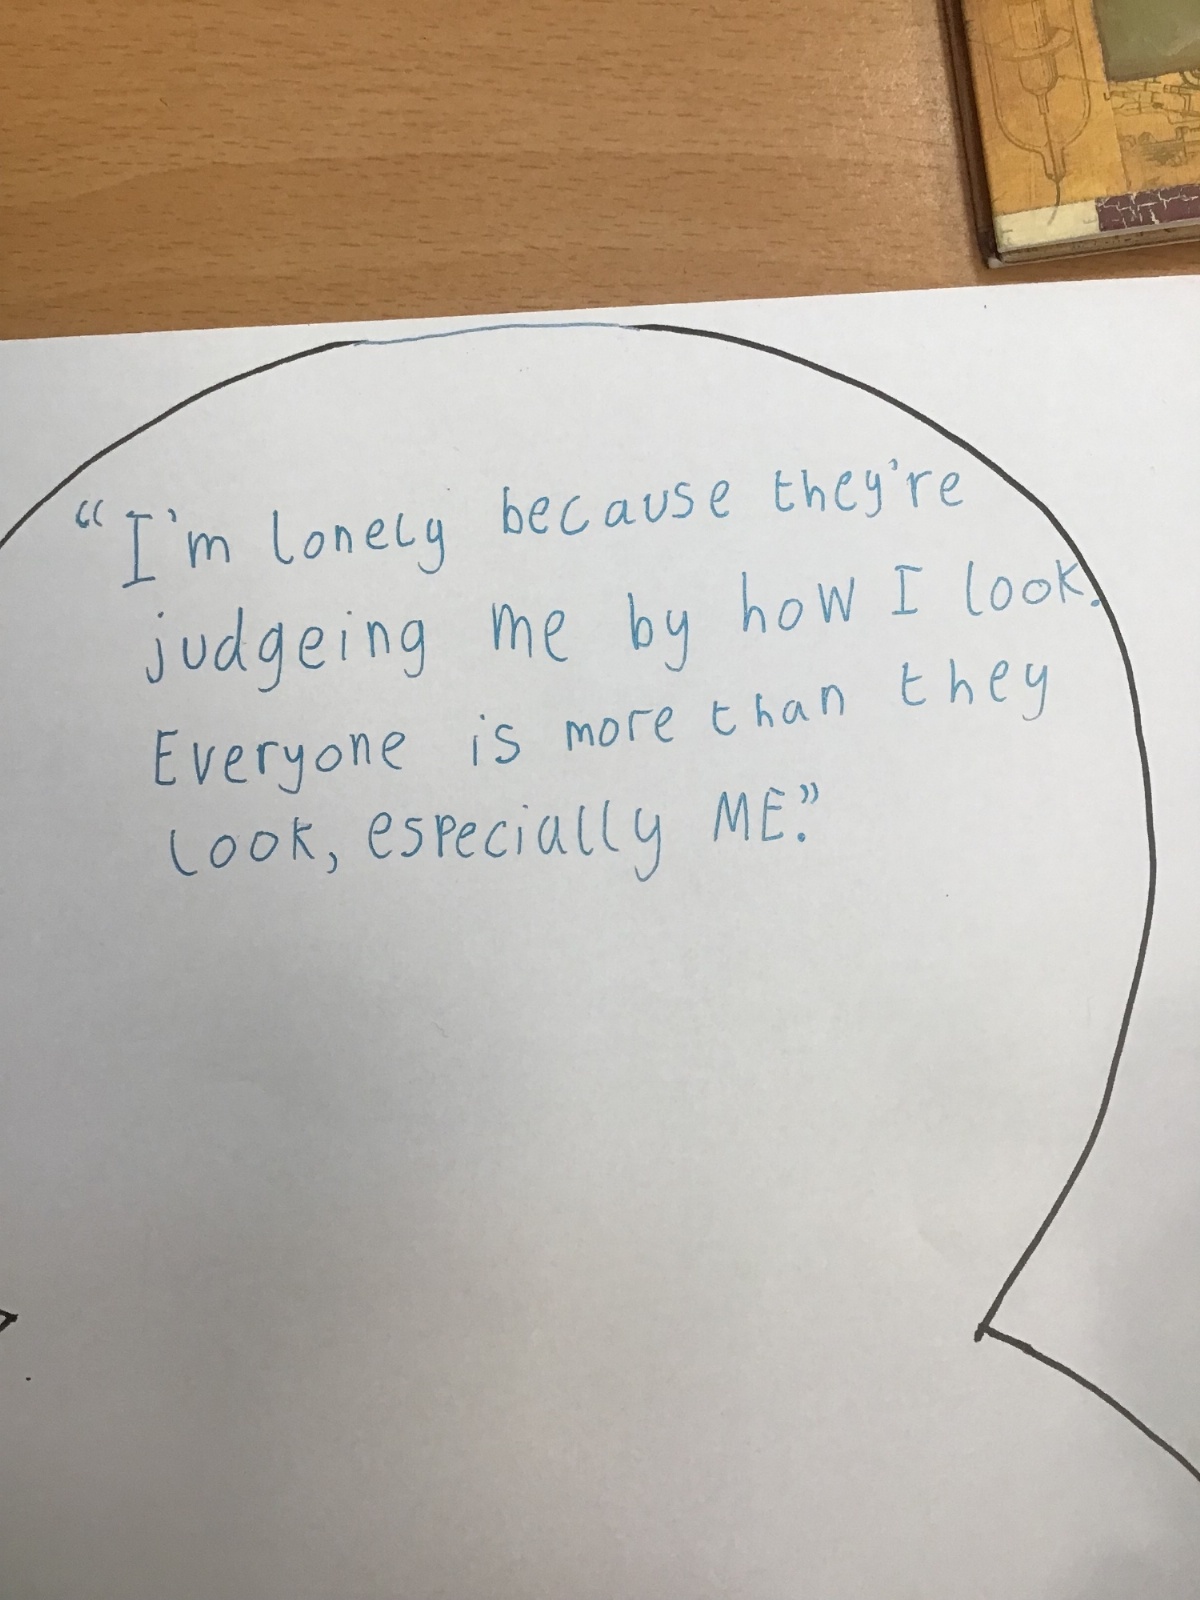 “I'm lonely because they're
judgeing me by how I look.
Everyone is more than they
look, especially ME.”